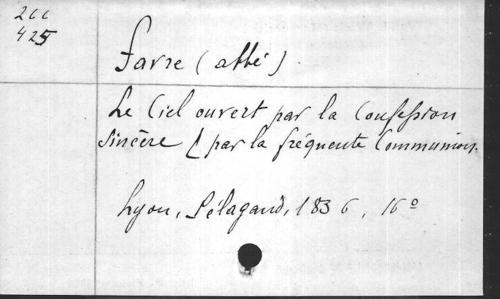 200
425
Favre (abbé)
Le Ciel ouvert par la Confession
sincère & par la fréquente Communion.
Lyon, Pélagaud, 1836, 16º